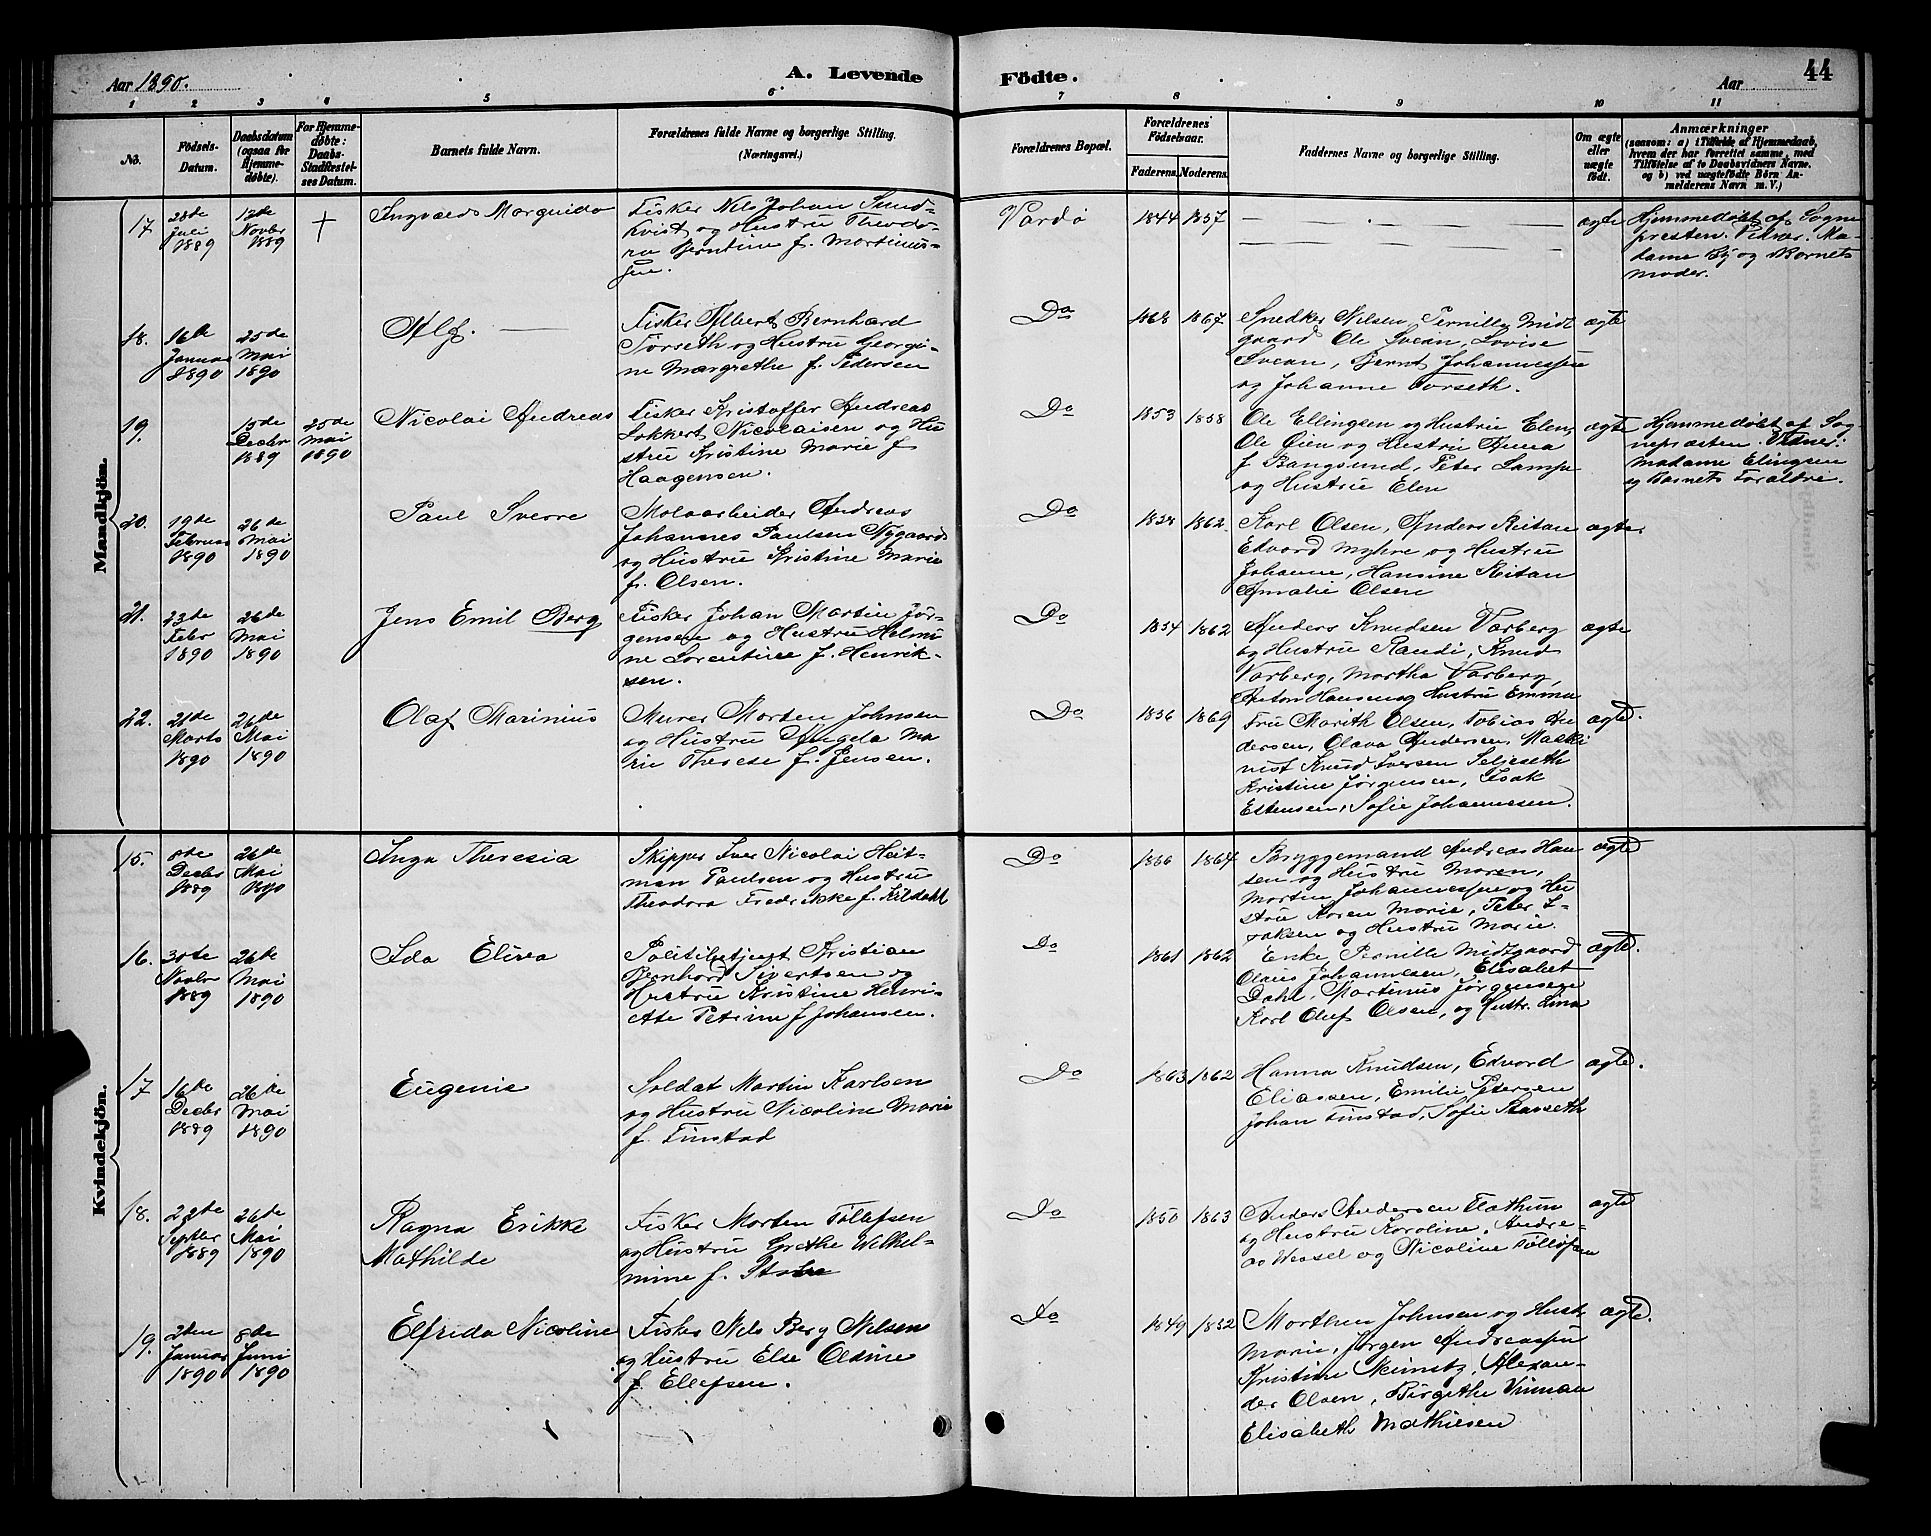 Aar 1890.
A. Levende
Födte.
Aar
44
1 2 3 4 5 6 7 8 9 10 11
No.
Födsels-
Datum.
Daabsdatum
(ogsaa for
Hjemme-
döbte).
For Hjemme-
döbte:
Daabs-
Stadfæstel-
ses Datum.
Barnets fulde Navn.
Forældrenes fulde Navne og borgerlige Stilling.
(Næringsvei.)
Forældrenes Bopæl.
Forældrenes
Födselsaar.
Faderens. Moderens.
Faddernes Navne og borgerlige Stilling.
Om ægte
eller
uægte
födt.
Anmærkninger
(saasom: a) i Tilfælde af Hjemmedaab,
hvem der har forrettet samme, med
Tilföielse af to Daabsvidners Navne.
og b) ved uægtefödte Börn An-
melderens Navn m. V.)
Mandkjön.
17 28de
Juli
1889
12de
Novbr
1889
+
Fisker Nils Johan Sund-
kvist og Hustru Theodo-
ra Berntine f. Martinus-
sen.
Vardø
1844 1857
ægte
Hjemmedøbt af Sogne
presten. Vidner. Ma-
dame By og Barnets
moder.
18. 16de
Januar
1890
25de
Mai
1890
Alf.
Fisker Albert Bernhard
Torseth og Hustru Georgi-
ne Margrethe f. Pedersen
Do
1868 1867
Snedker Nilsen, Pernille Midt
gaard Ole Svean, Lovise
Svean, Bernt Johannessen
og Johanne Torseth.
ægte
19.
15de
Decbr
1889
25de
Mai
1890
Nicolai Andreas
Fisker Kristoffer Andreas
Lokkert Nicolaisen og Hu
stru Kristine Marie f
Haagensen.
Do
1853 1858
Ole Ellingsen og Hustru Elen,
Ole Øien og Hustru Anna
f Bangsund, Peter Lampe
og Hustru Elen
ægte
Hjemmedøbt af Sog
nepræsten. Vidner.
Madame Elingsen
og Barnets Foraldre.
20. 19de
Februar
1890
26de
Mai
1890
Paul Sverre
Moloarbeider Andreas
Johannes Paulsen Nygaard
og Hustru Kristine Marie
f. Olsen.
Do
1862.
Karl Olsen, Anders Reitan
Edvard Myhre og Hustru
Johanne, Hansine Reitan
Amalie Olsen
ægte.
21. 23de
Febr
1890
26de
Mai
1890
Jens Emil Berg
Fisker Johan Martin Jör-
gensen og Hustru Helmi
ne Lorentine f. Henrik-
sen.
Do
1854 1862
Anders Knudsen Varberg
og Hustru Randi, Knud
Varberg, Martha Varberg,
Anton Hansen og Hustru Emma
ægte
22. 21de
Marts
1890
26de
Mai
1890
Olaf Marinius
Murer Morten Johnsen
og Hustru Angela Ma
rie Therese f. Jensen.
Do
1856 1869
Fru Marith Olsen, Tobias An
dersen, Olava Andersen, Maski
nist Knud Iversen Seljeseth
Kristine Jørgensen, Isak
Estensen, Sofie Johannesen.
ægte.
Kvindekjön.
15. 8de
Decbr
1889
26de
Mai
1890
Inga Theresia
Skipper Iver Nicolai Heit-
man Paulsen og Hustru
Theodora Fredrikke f. Kildahl
Do
1866 1864
Bryggemand Andreas Han
sen og Hustru Maren,
Martin Johannessen og Hu
stru Karen Marie, Peter I-
saksen og Hustru Marie.
ægte
16. 30te
Novbr
1889
26de
Mai
1890
Ida Eliva
Politibetjent Kristian
Bernhard Sivertsen og
Hustru Kristine Henri-
ette Petrine f Johansen.
Do
1861 1862
Enke Pernille Midtgaard
Olaus Johannesen, Elisabet
Dahl, Martinus Jørgensen
Karl Oluf Olsen, og Hustr. Lina
ægte.
17 16de
Decbr
1889
26de
Mai
1890
Eugenie
Soldat Martin Karlsen
og Hustru Nicoline Marie
f. Finstad
Do
1863 1862
Hanna Knudsen, Edvard
Eliassen, Emilie Petersen
Johan Finstad, Sofie
ægte.
18. 22de
Septbr
1889
26de
Mai
1890
Ragna Erikke
Mathilde
Fisker Morten Tollefsen
og Hustru Grethe Wilhel-
mine f.
Do
1850 1863
Anders Andersen Flathun
og Hustru Karoline, Andre-
as Wessel og Nicoline Tollefsen
ægte
19. 2den
Januar
1890
8de
Juni
1890
Elfrida Nicoline
Fisker Nils Berg Nilsen
og Hustru Else Olsine
f. Ellefsen.
Do
1849 1852
Morthen Johnsen og Hust
Marie, Jørgen Andreassen
Kristine, Alexan-
der Olsen, Birgethe
Elisabeth Mathiesen
ægte.